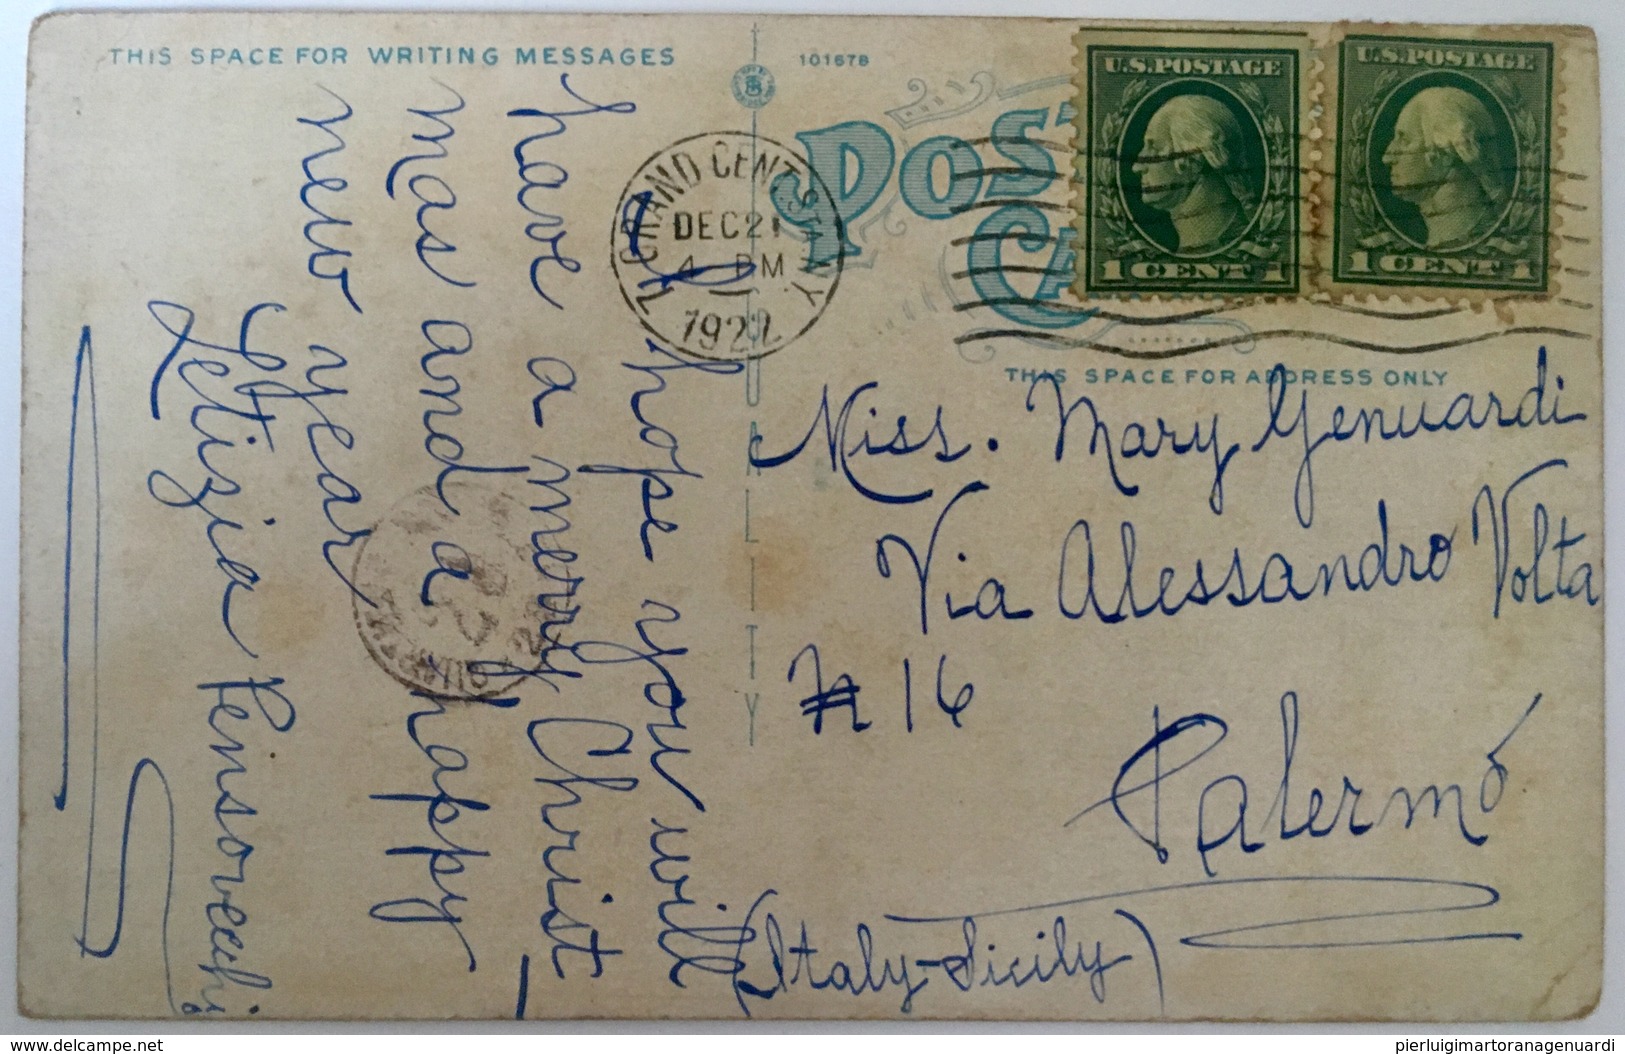 THIS SPACE FOR WRITING MESSAGES
101678
POST CA
U.S.POSTAGE
1 CENT 1
U.S.POSTAGE
1 CENT 1
GRAND CENT. STA. N.Y.
DEC 21
4 PM
1922
THIS SPACE FOR ADDRESS ONLY
QUALITY
I hope you will
have a merry Christ-
mas and a happy
new year
Letizia Pensovecchi
Miss. Mary Genuardi
Via Alessandro Volta
N 16
Palermo
(Italy-Sicily)
delcampe.net
pierluigimartoranagenuardi